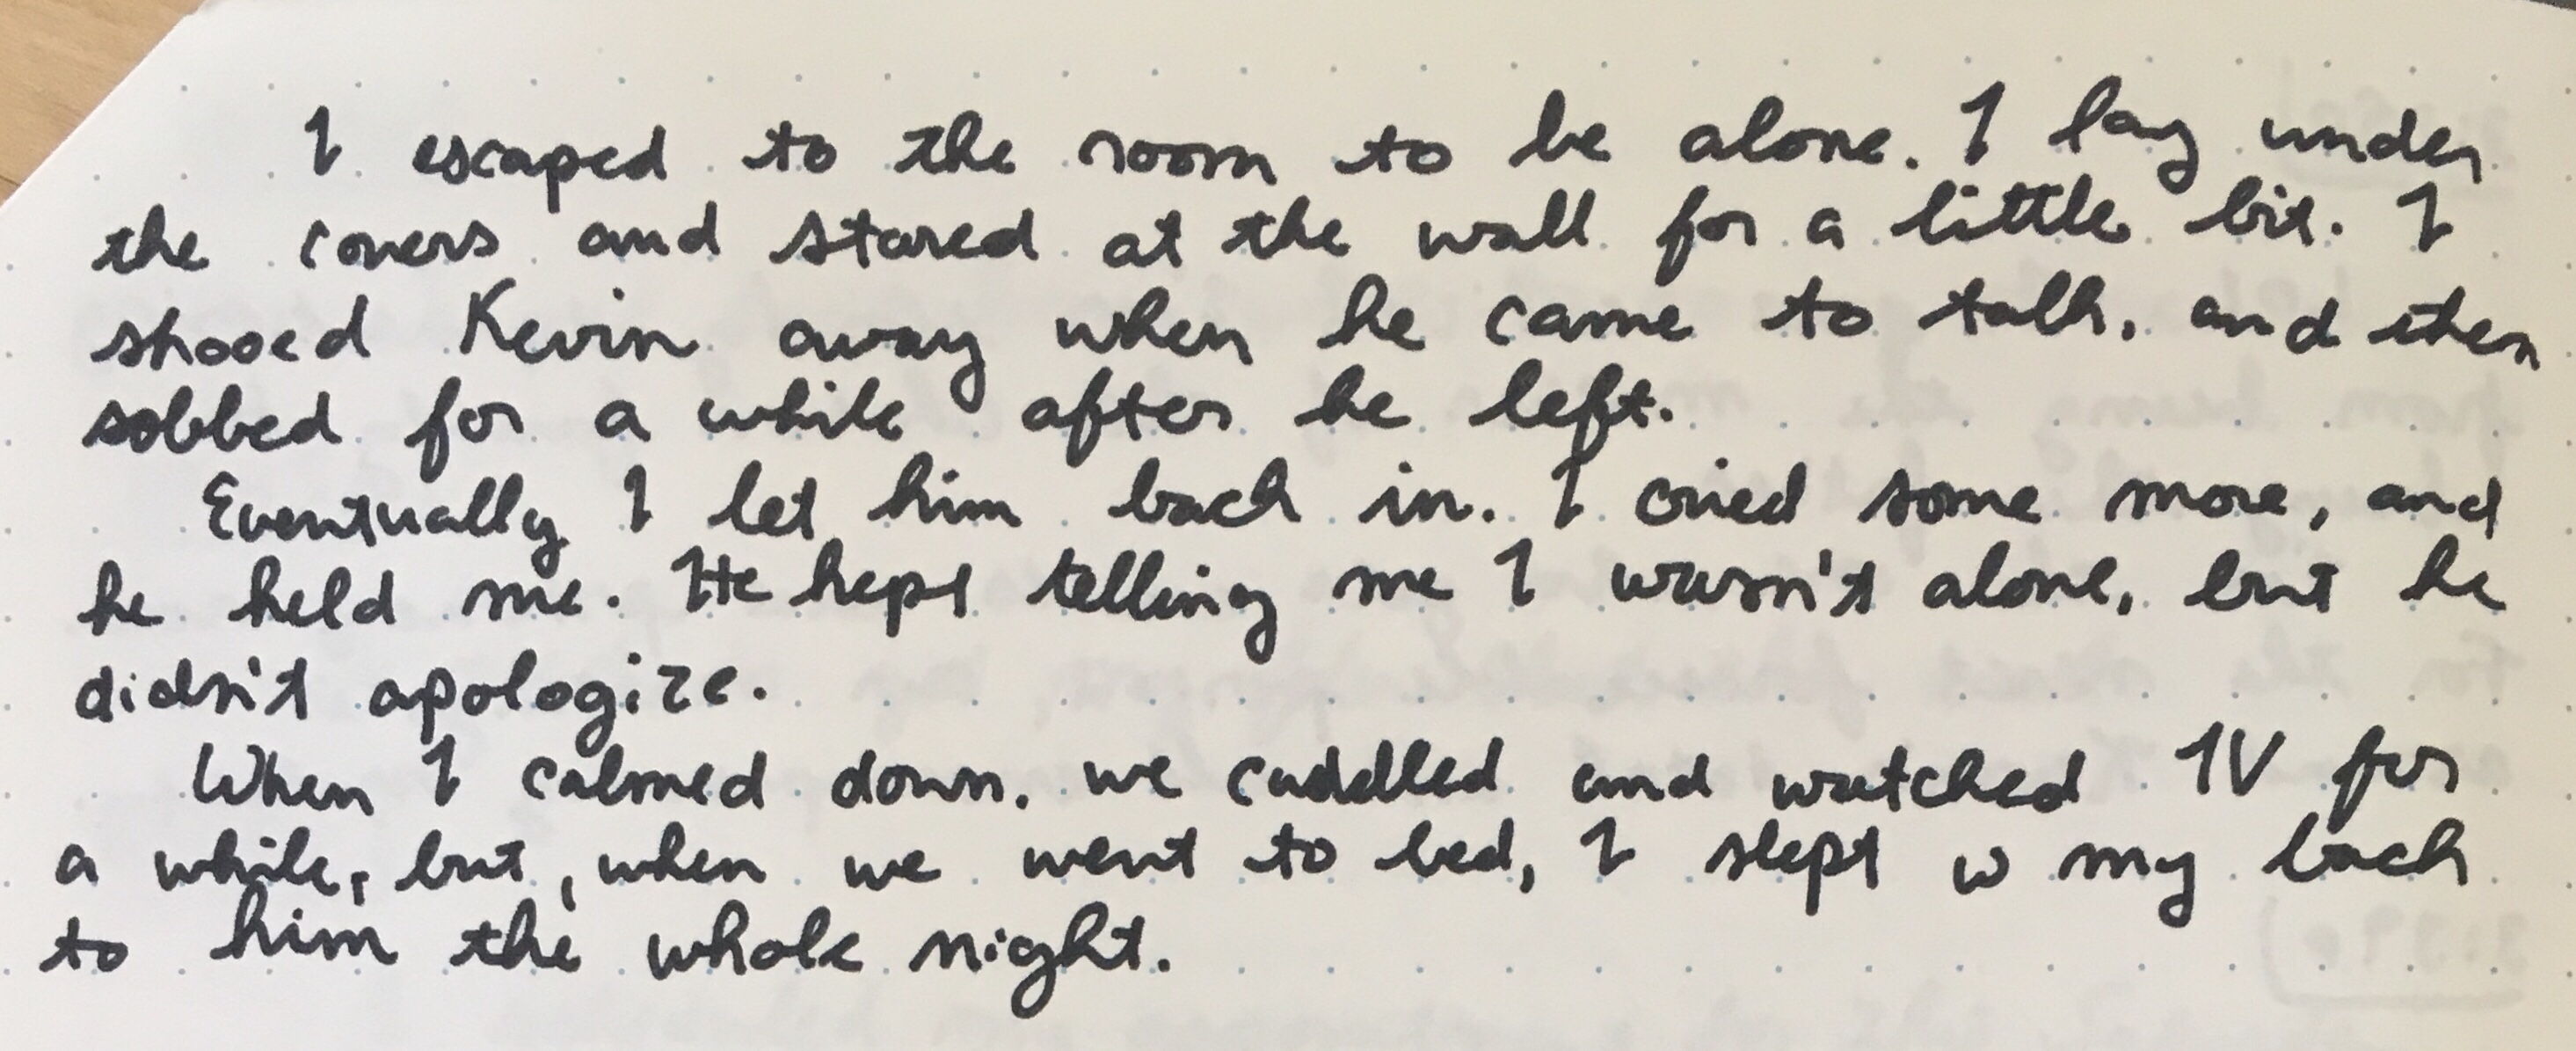 I escaped to the room to be alone. I lay under
the covers and stared at the wall for a little bit. I
shooed Kevin away when he came to talk, and then
sobbed for a while after he left.
Eventually I let him back in. I cried some more, and
he held me. He kept telling me I wasn't alone, but he
didn't apologize.
When I calmed down, we cuddled and watched TV for
a while, but, when we went to bed, I slept w my back
to him the whole night.